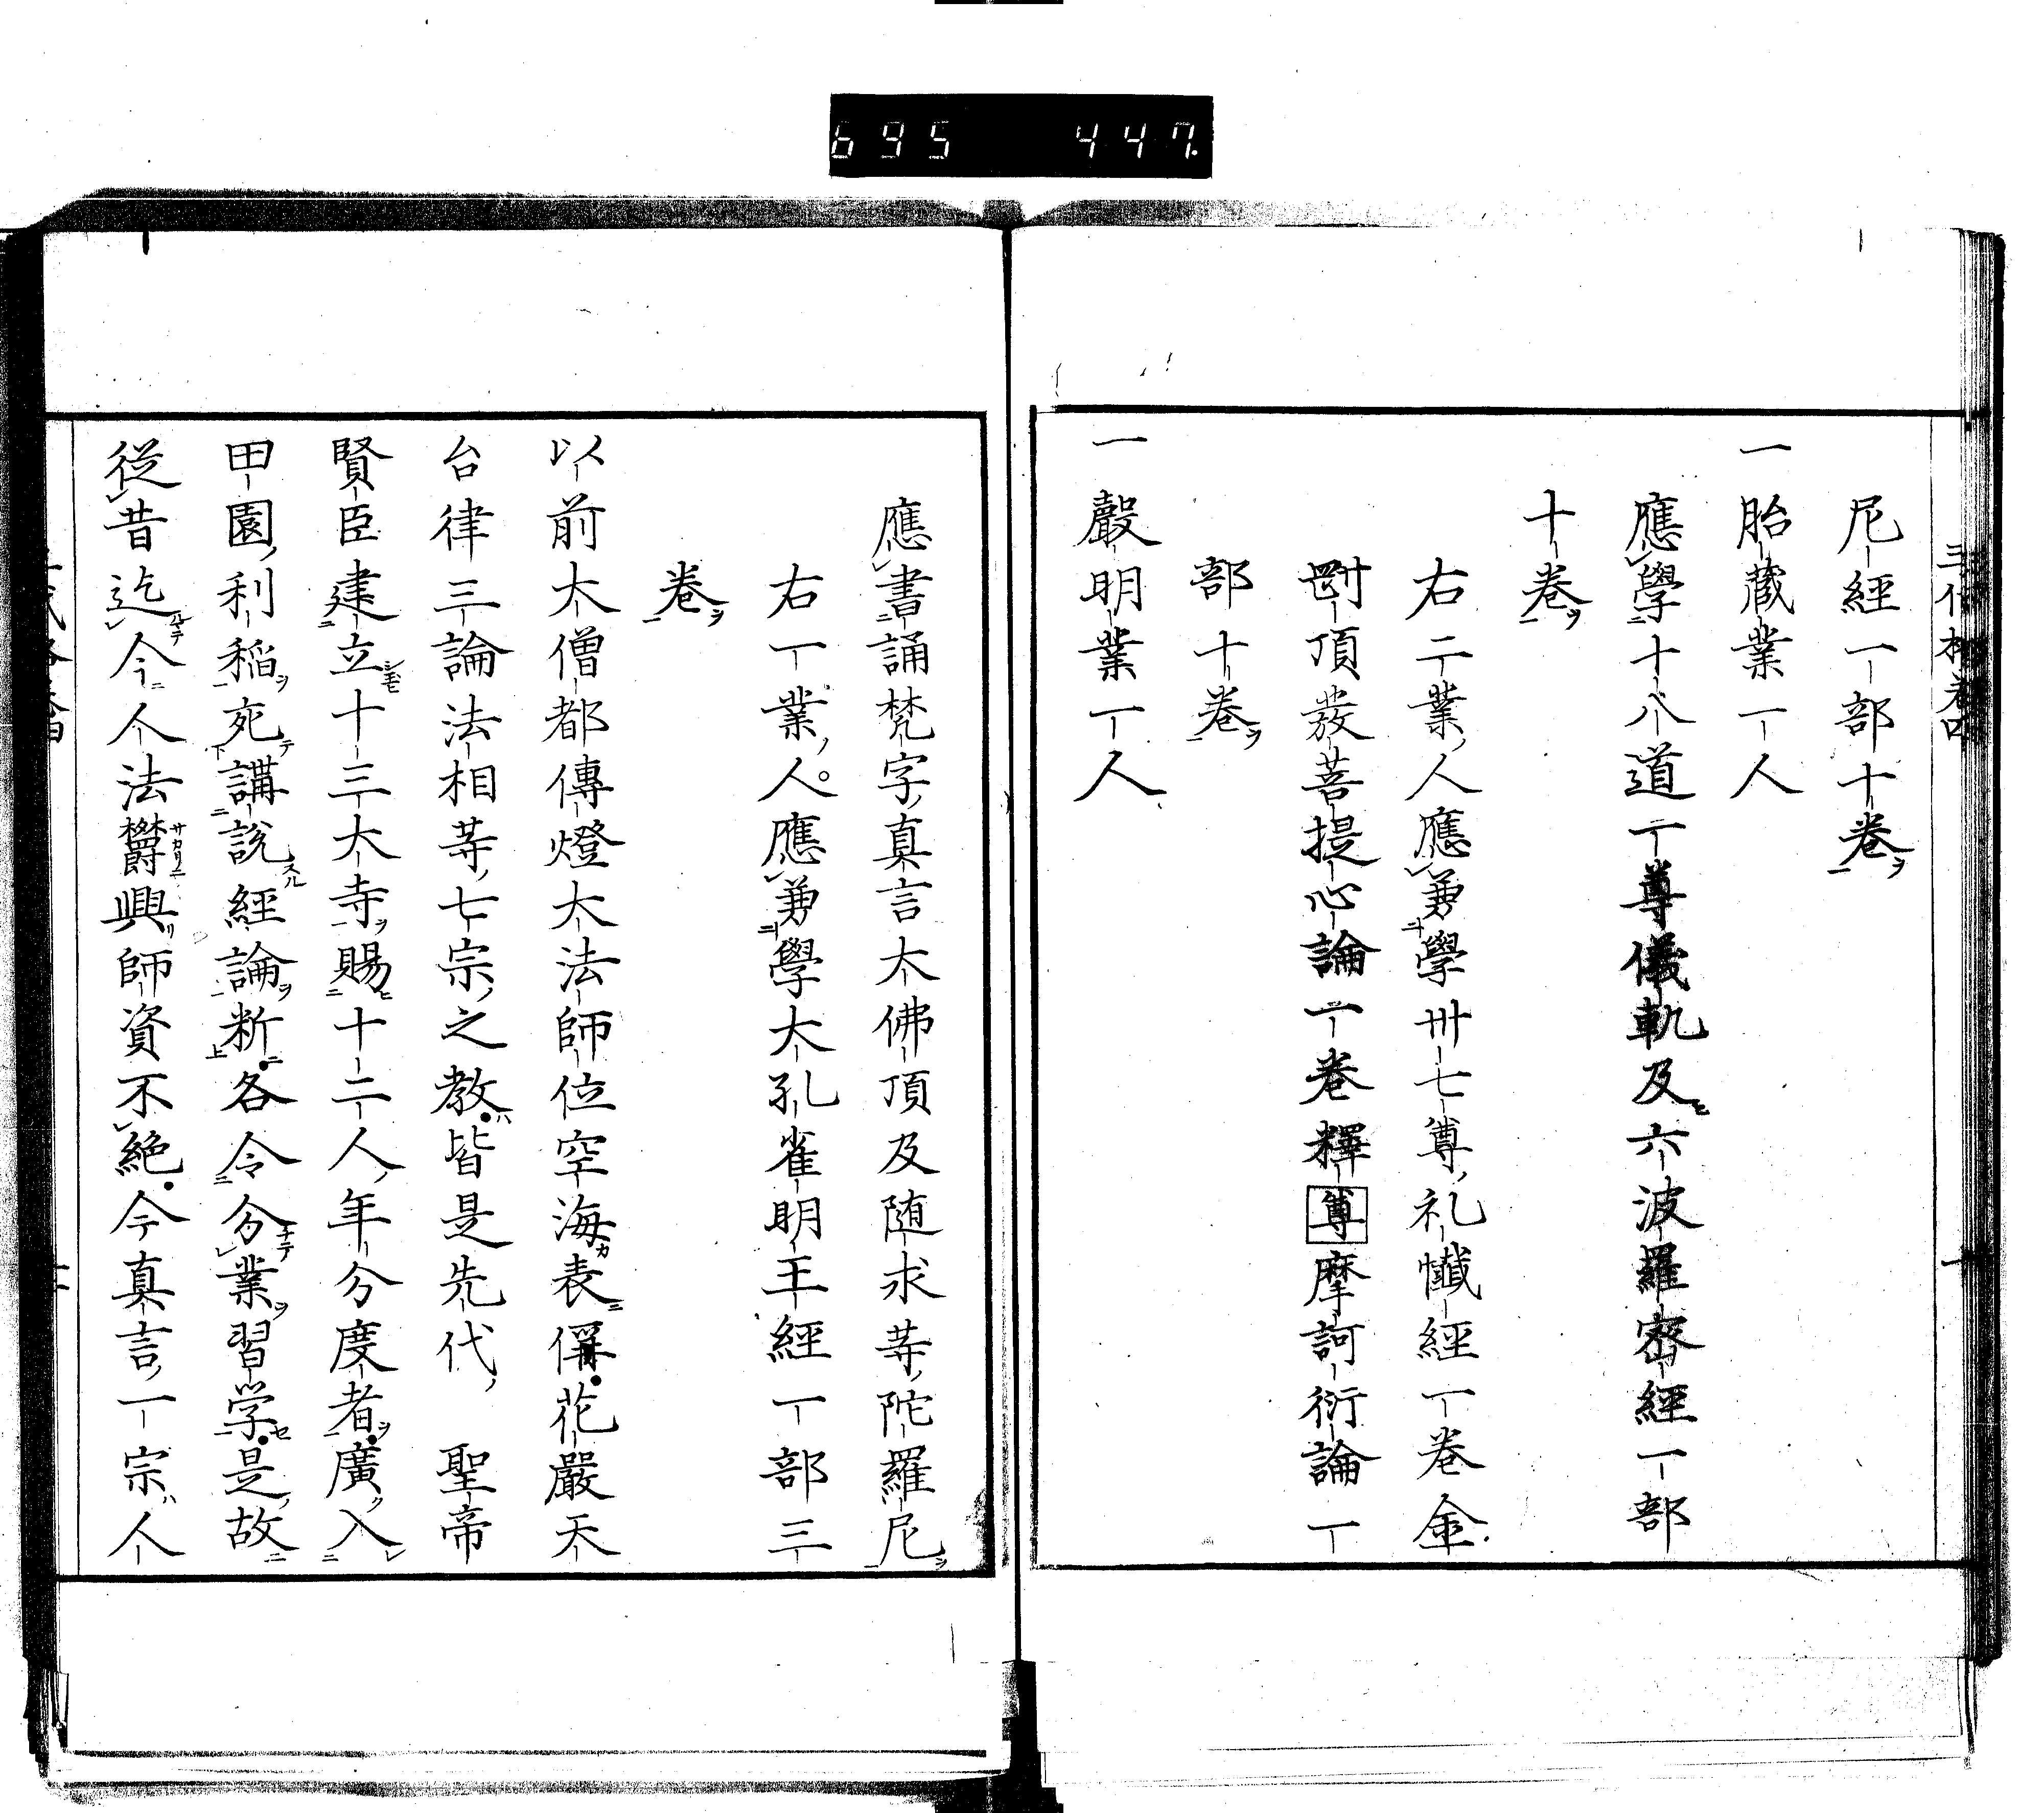 695 447.
尼經一部十卷ヲ
一胎蔵業一人
應學十八道一尊儀軌及六波羅密經一部
十卷ヲ
右二業人應兼學卅七尊礼懺經一卷金
剛頂發菩提心論一卷釋尊摩訶衍論一
部十卷ヲ
一聲明業一人
應書誦梵字真言大佛頂及随求等陀羅尼ヲ
右一業人應兼學大孔雀明王經一部三
卷ヲ
以前大僧都傳燈大法師位空海表偁花嚴天
台律三論法相等七宗之教皆是先代 聖帝
賢臣建立十三大寺賜十二人年分度者廣入
甲園利稻宛講說經論断各令分業習学是故
從昔迄今人法欝興師資不絶今真言一宗人